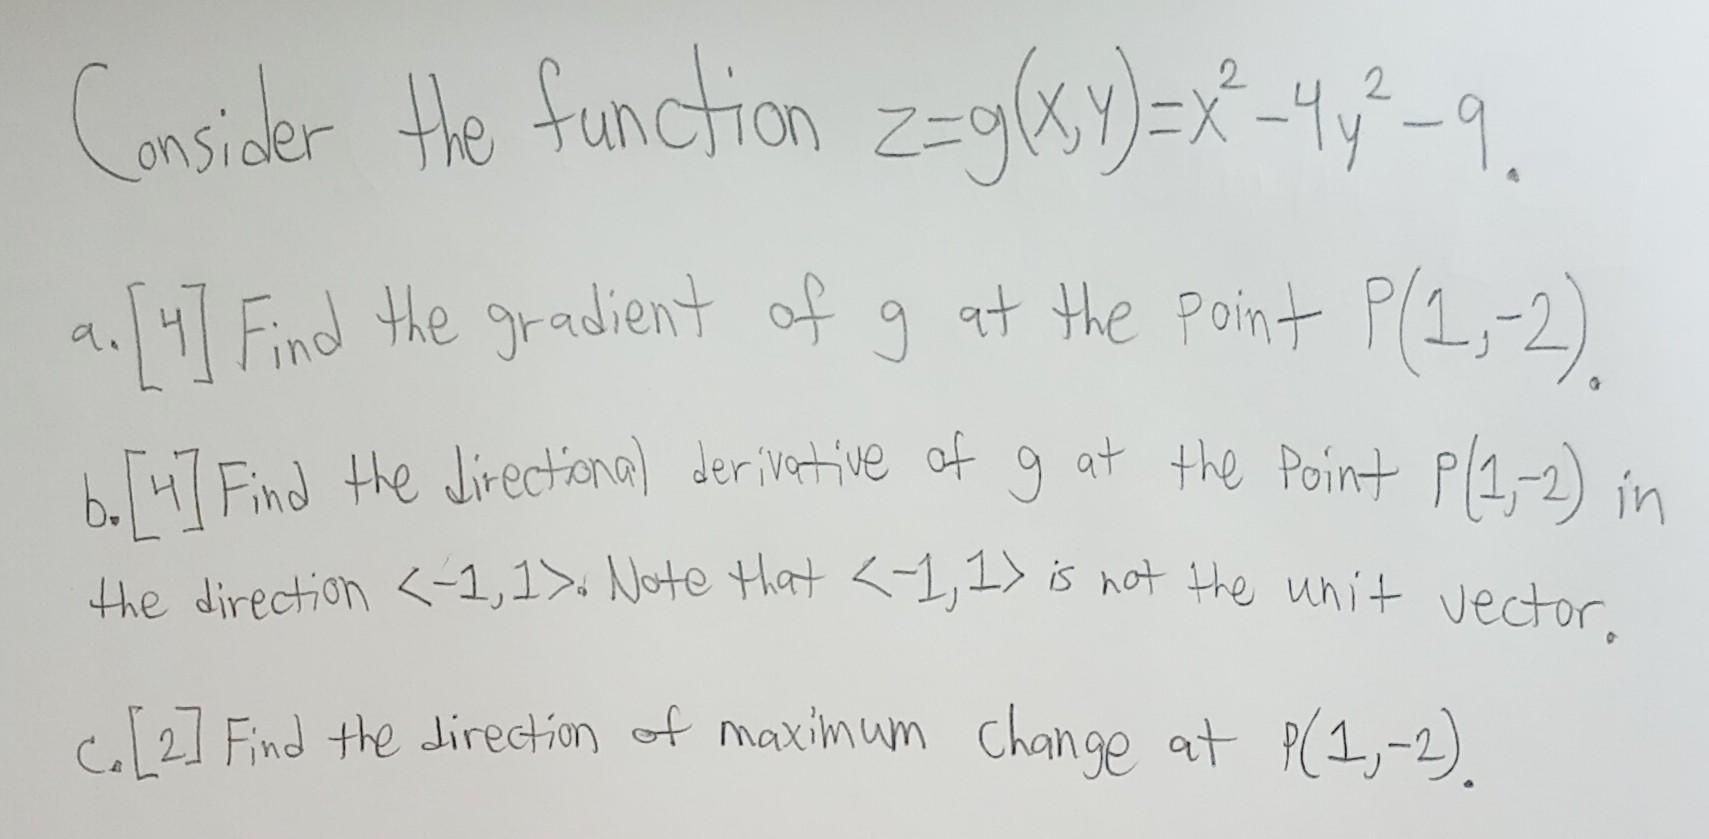 Consider the function z=g(x,y)=x²-4y²-9.
a.[4] Find the gradient of g at the point P(1,-2).
b.[4] Find the directional derivative of g at the Point P(1,-2) in
the direction <-1,1>. Note that <-1,1> is not the unit vector.
c.[2] Find the direction of maximum change at P(1,-2).